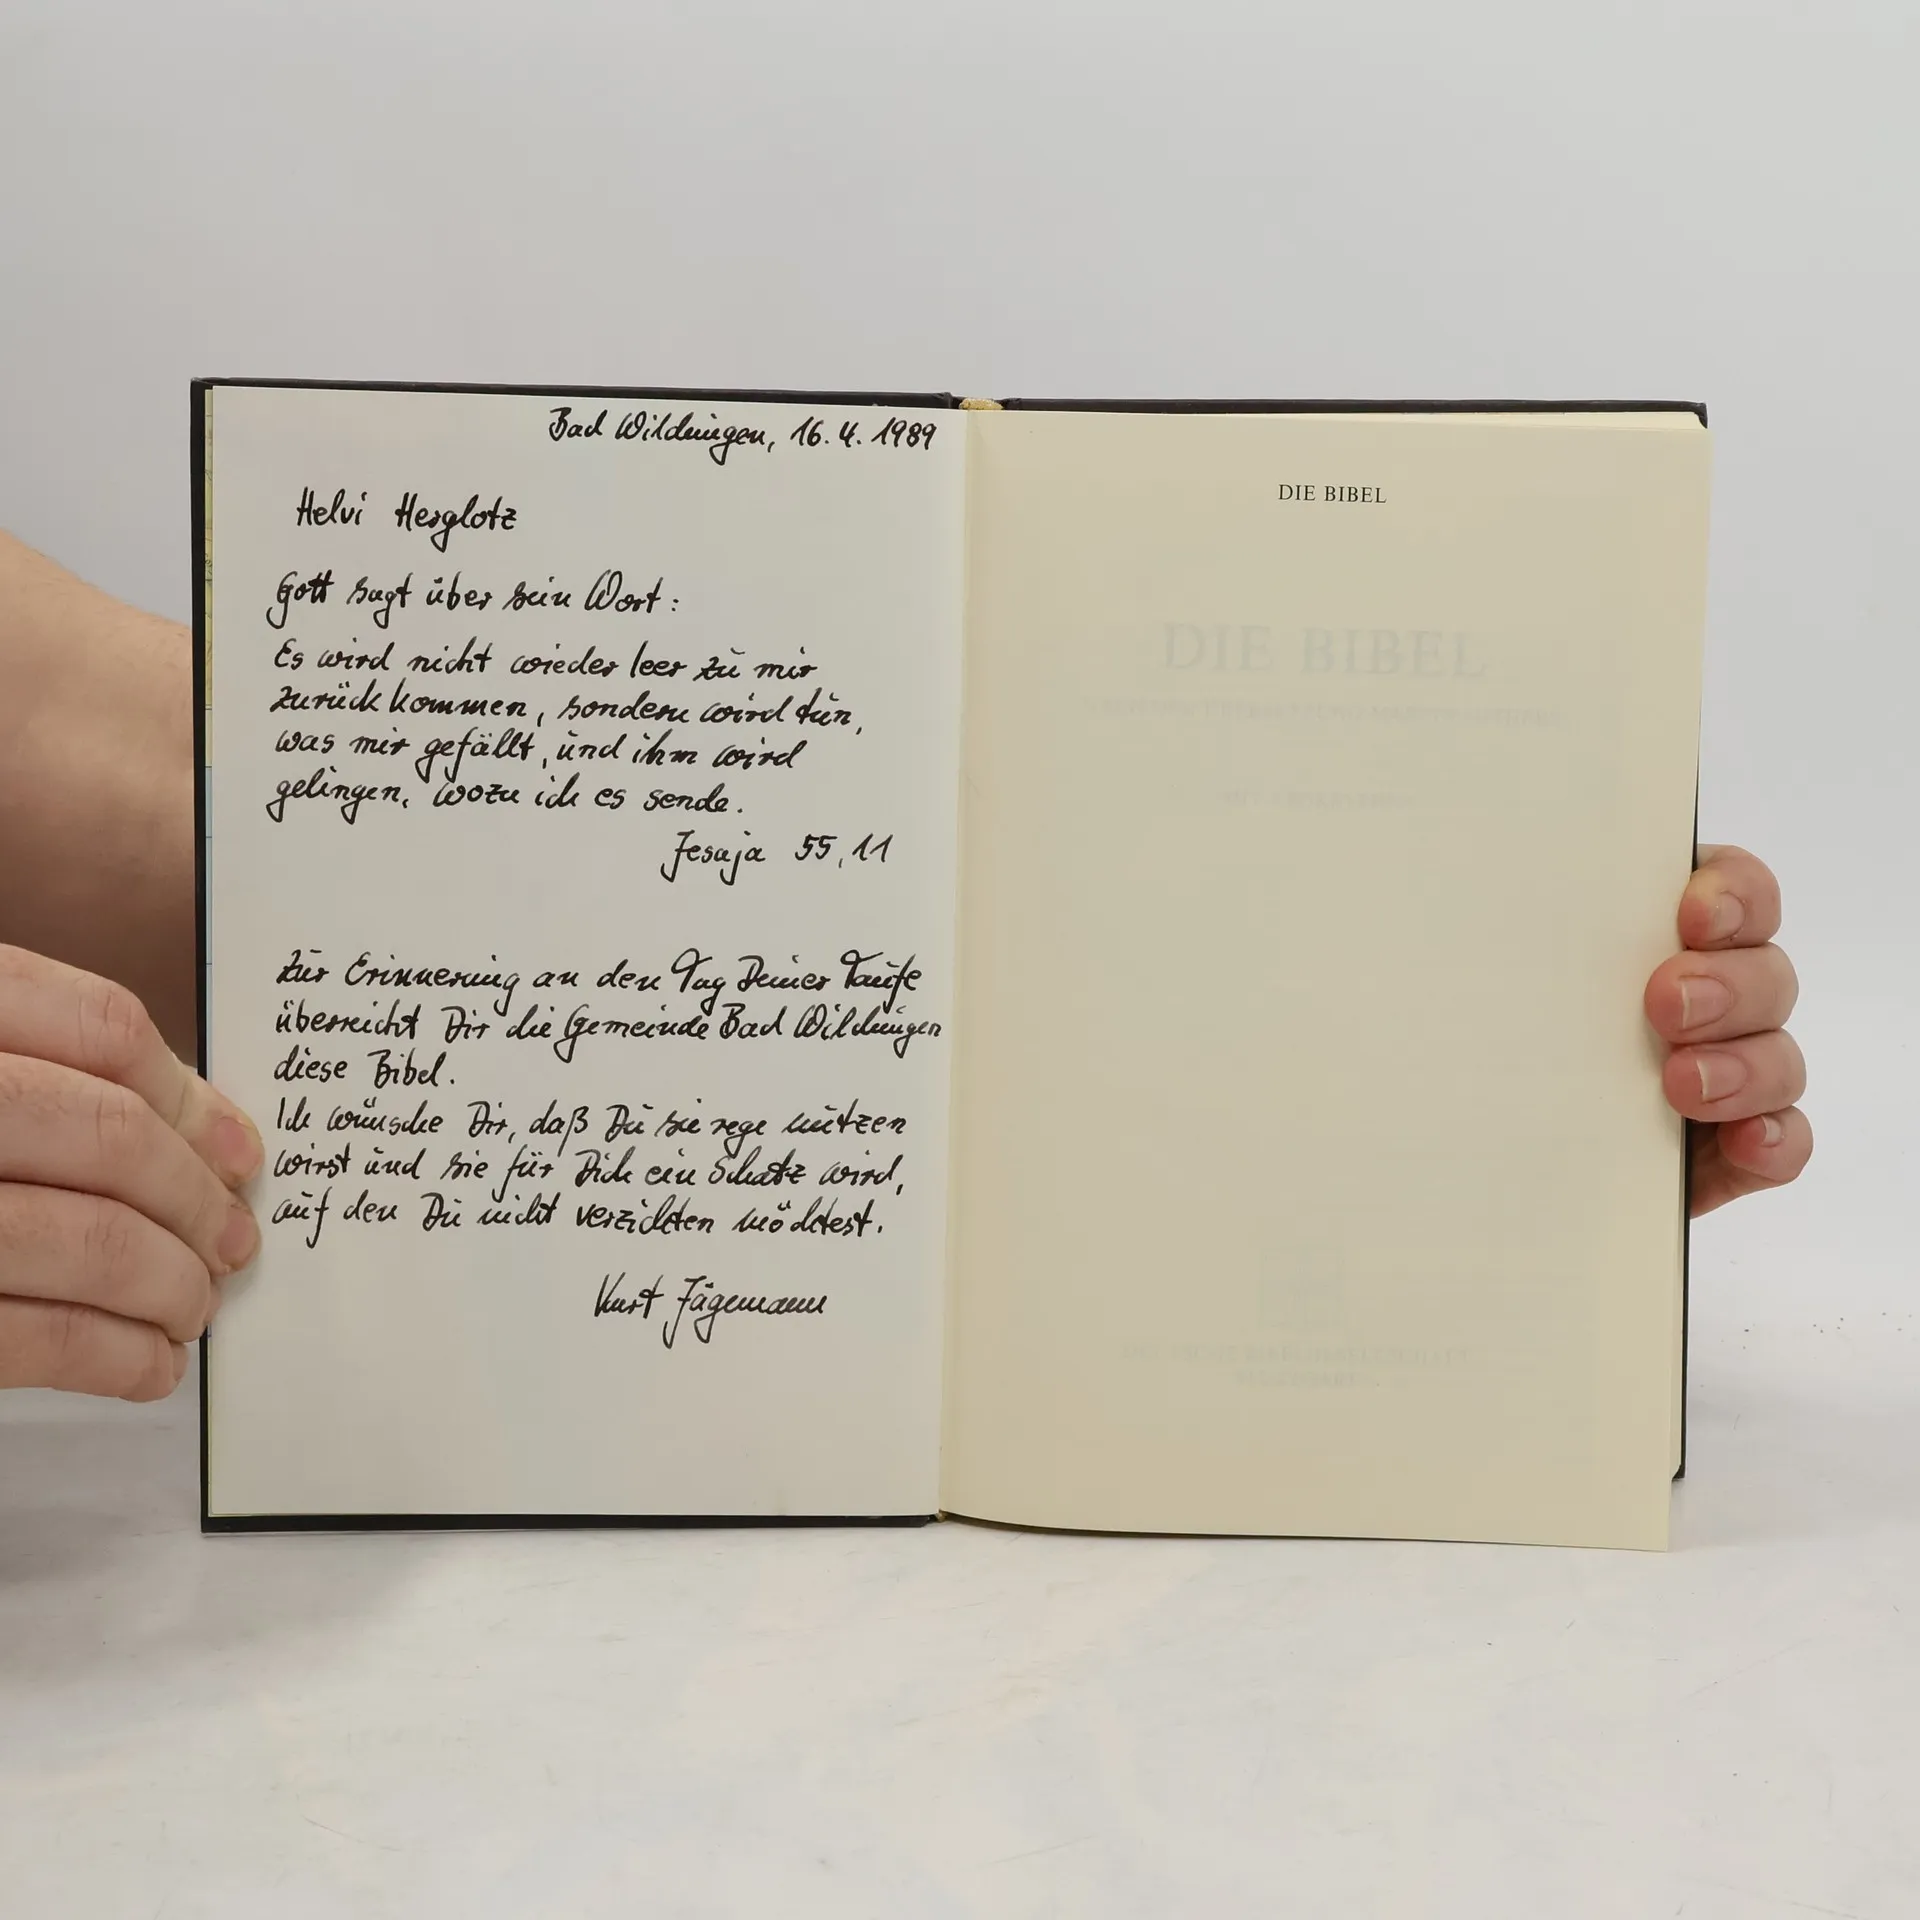 Bad Wildungen, 16.4.1989
Helvi Herglotz
Gott sagt über sein Wort:
Es wird nicht wieder leer zu mir
zurückkommen, sondern wird tun,
was mir gefällt, und ihm wird
gelingen, wozu ich es sende.
Jesaja 55,11
Zur Erinnerung an den Tag Deiner Taufe
überreicht Dir die Gemeinde Bad Wildungen
diese Bibel.
Ich wünsche Dir, daß Du sie rege nützen
wirst und sie für Dich ein Schatz wird,
auf den Du nicht verzichten möchtest.
Kurt Jägemann
DIE BIBEL
DIE BIBEL